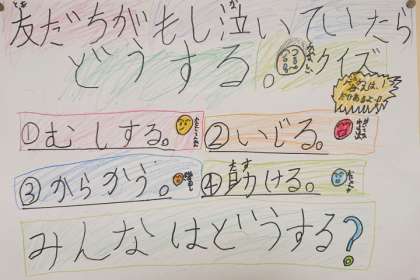 友だちがもし泣いていたら
どうする。クイズ
①むしする。 ②いじる。
③からかう。 ④助ける。
みんなはどうする?